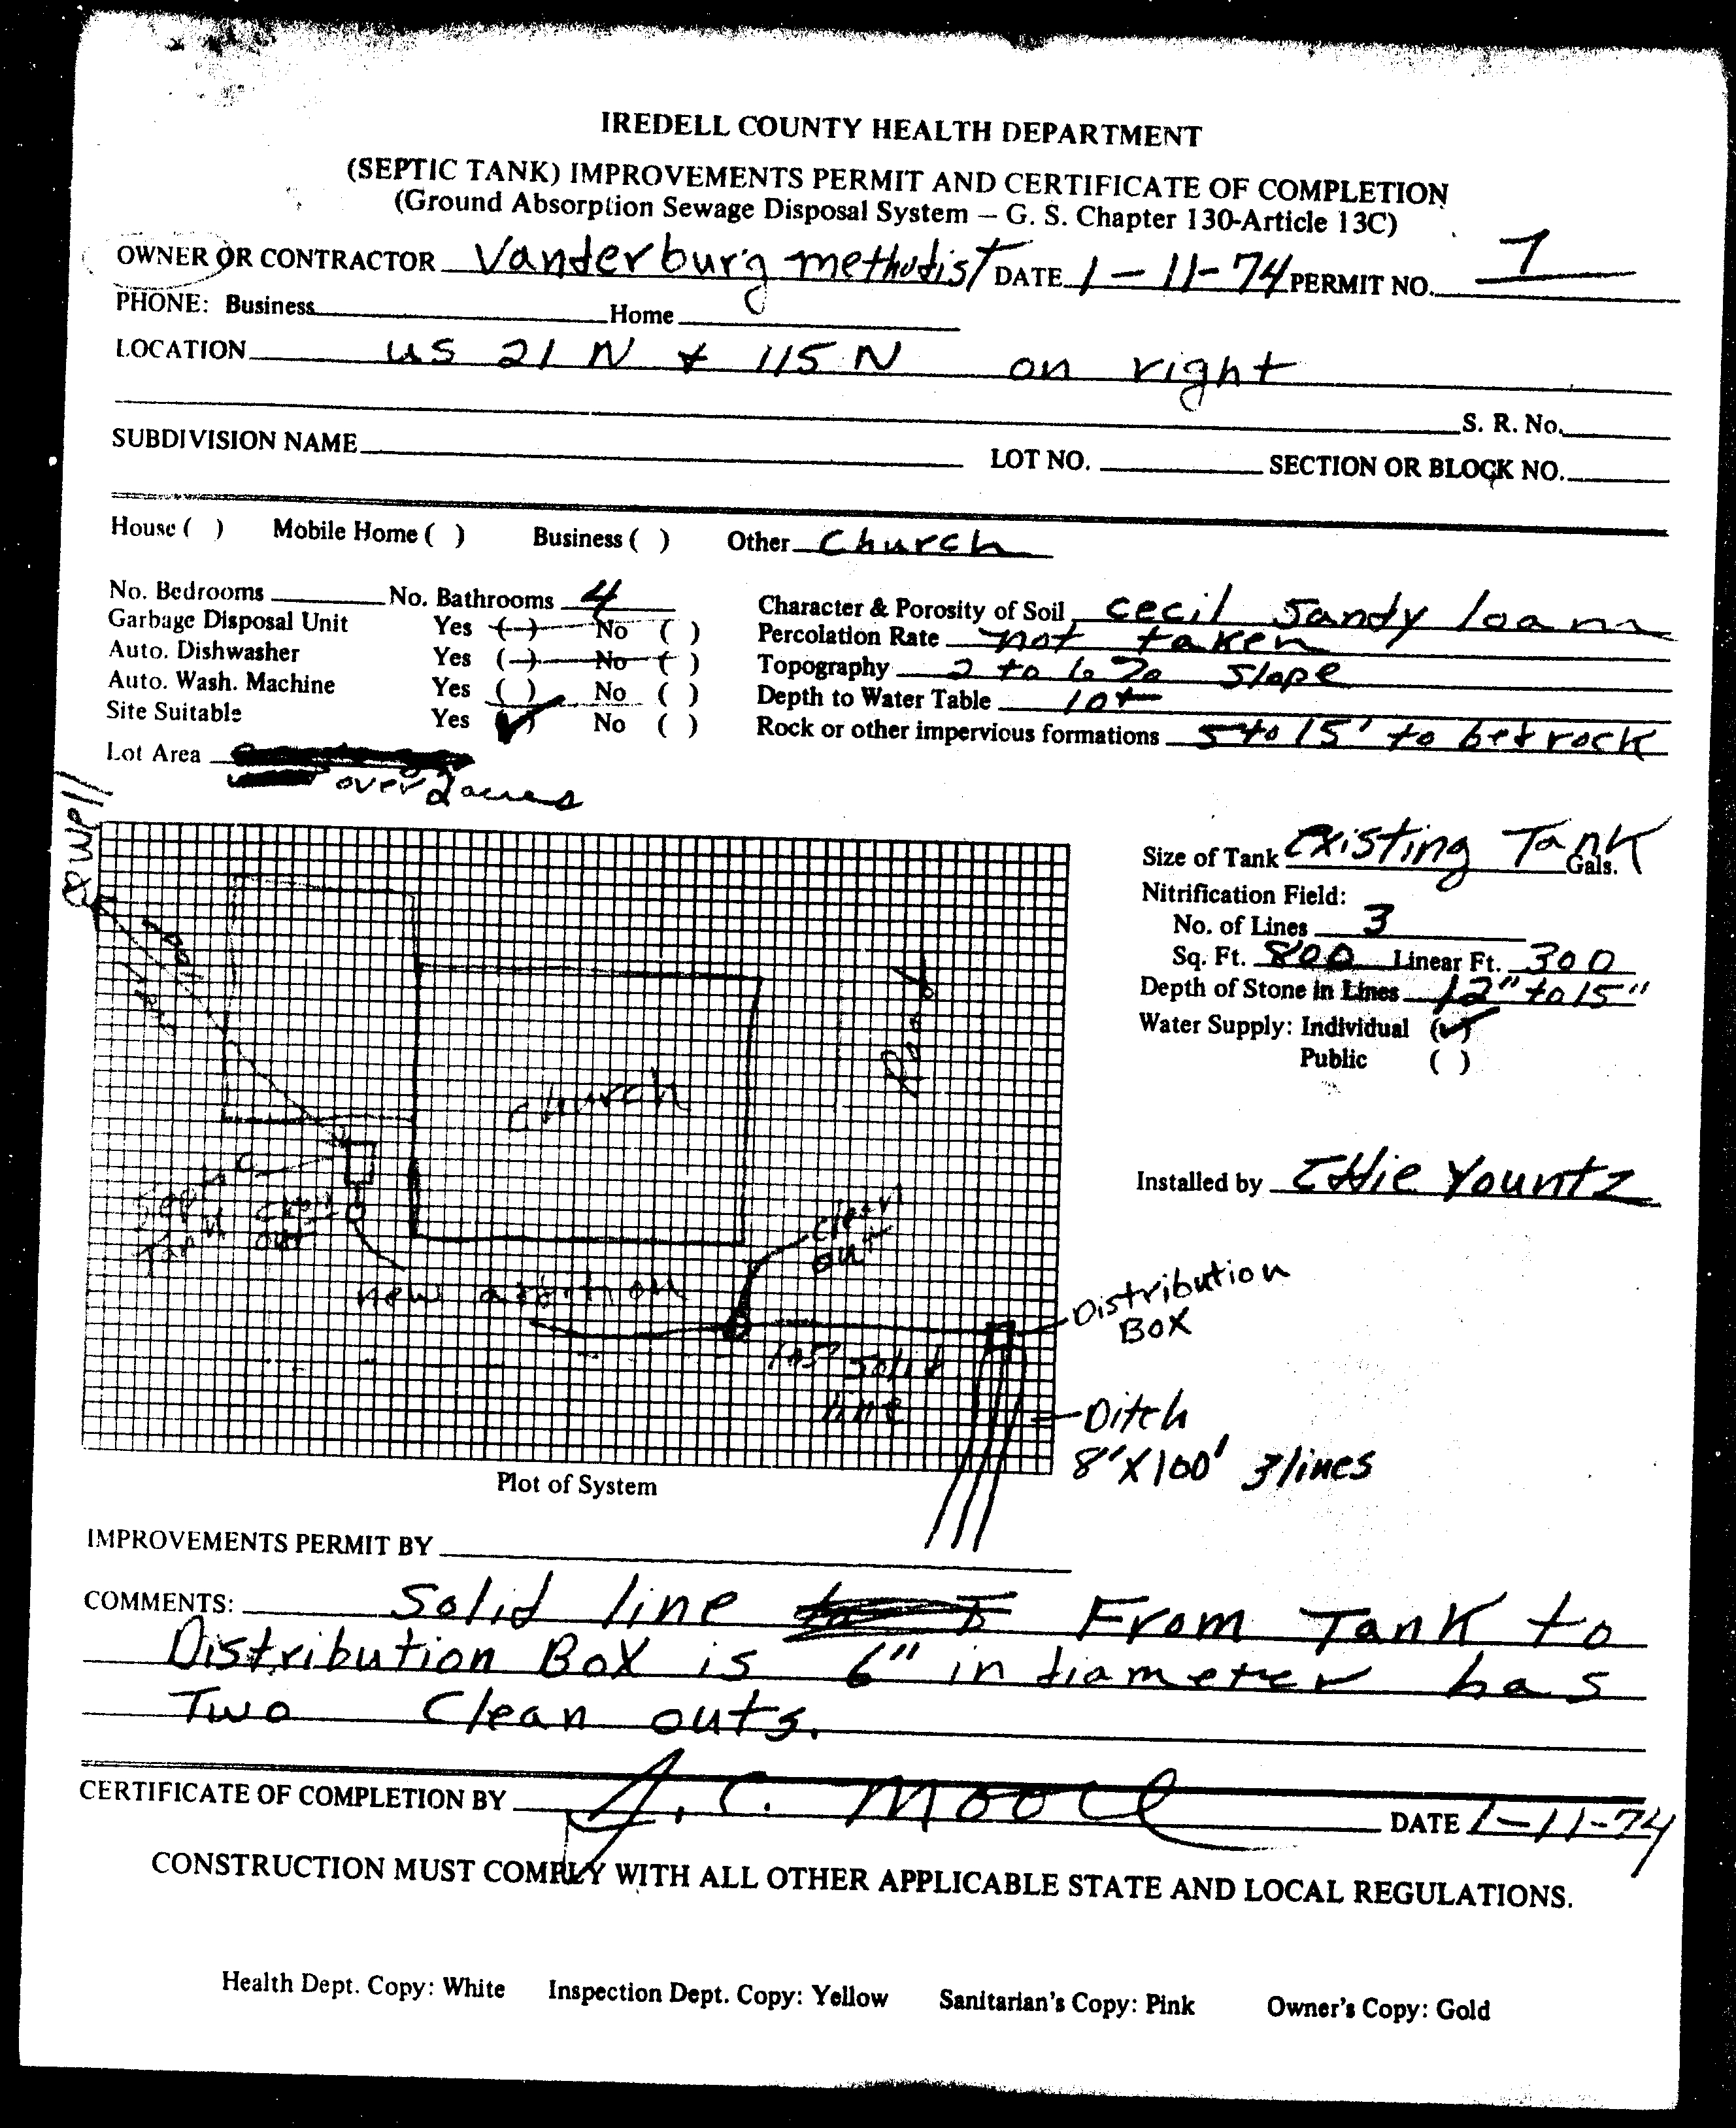 IREDELL COUNTY HEALTH DEPARTMENT
(SEPTIC TANK) IMPROVEMENTS PERMIT AND CERTIFICATE OF COMPLETION
(Ground Absorption Sewage Disposal System – G. S. Chapter 130-Article 13C)
OWNER OR CONTRACTOR Vanderburg methodist DATE 1-11-74 PERMIT NO. 7
PHONE: Business Home
LOCATION US 21 N + 115 N on right
S. R. No.
SUBDIVISION NAME LOT NO. SECTION OR BLOCK NO.
House ( ) Mobile Home ( ) Business ( ) Other Church
No. Bedrooms No. Bathrooms 4
Garbage Disposal Unit Yes ( ) No ( )
Auto. Dishwasher Yes ( ) No ( )
Auto. Wash. Machine Yes ( ) No ( )
Site Suitable Yes (✓) No ( )
Lot Area over 2 acres
Character & Porosity of Soil Cecil Sandy loam
Percolation Rate not taken
Topography 2 to 6% Slope
Depth to Water Table 10+
Rock or other impervious formations 5 to 15' to betrock
well
Road
Church
Septic Tank
clean out
clean out
new addition
solid line
Distribution Box
Ditch
8"X100' 3 lines
Plot of System
Size of Tank Existing Tank Gals.
Nitrification Field:
No. of Lines 3
Sq. Ft. 800 Linear Ft. 300
Depth of Stone in Lines 12" to 15"
Water Supply: Individual (✓)
Public ( )
Installed by Eddie Yountz
IMPROVEMENTS PERMIT BY
COMMENTS: Solid line From Tank to
Distribution Box is 6" in diameter has
Two Clean outs.
CERTIFICATE OF COMPLETION BY J. C. Moore DATE 1-11-74
CONSTRUCTION MUST COMPLY WITH ALL OTHER APPLICABLE STATE AND LOCAL REGULATIONS.
Health Dept. Copy: White Inspection Dept. Copy: Yellow Sanitarian's Copy: Pink Owner's Copy: Gold